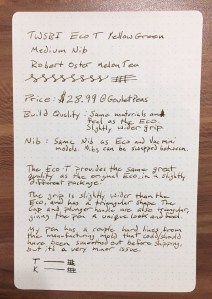 TWSBI Eco T Yellow Green
Medium Nib
Robert Oster Melon Tea
Price: $28.99 @ Goulet Pens
Build Quality: Same materials and
feel as the Eco.
Slightly wider grip.
Nib: Same Nib as Eco and Vac mini
models. Nibs can be swapped between.
The Eco T provides the same great
quality as the original Eco in a slightly
different package.
The grip is slightly wider than the
Eco, and has a triangular shape. The
cap and plunger handle are also triangular,
giving the pen a unique look and feel.
My pen has a couple hard lines from
the manufacturing mold that could/should
have been smoothed out before shipping,
but its a very minor issue.
T
K